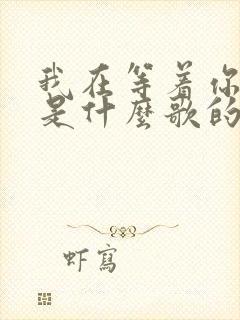 我在等着你
是什麼歌的
虾寫